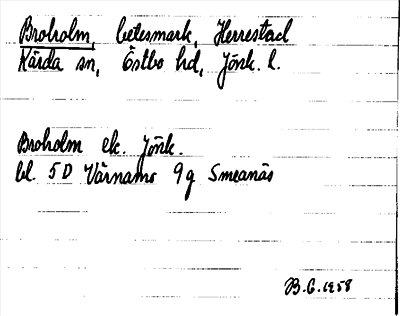 Broholm, betesmark, Herrestad
Kärda sn, Östbo hd, Jönk. l.
Broholm ek. Jönk.
bl. 5D Värnamo 9g Smeanäs
B.G. 1958